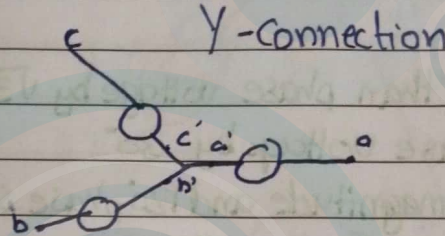 Y-Connection
c
c' a' a
b'
b